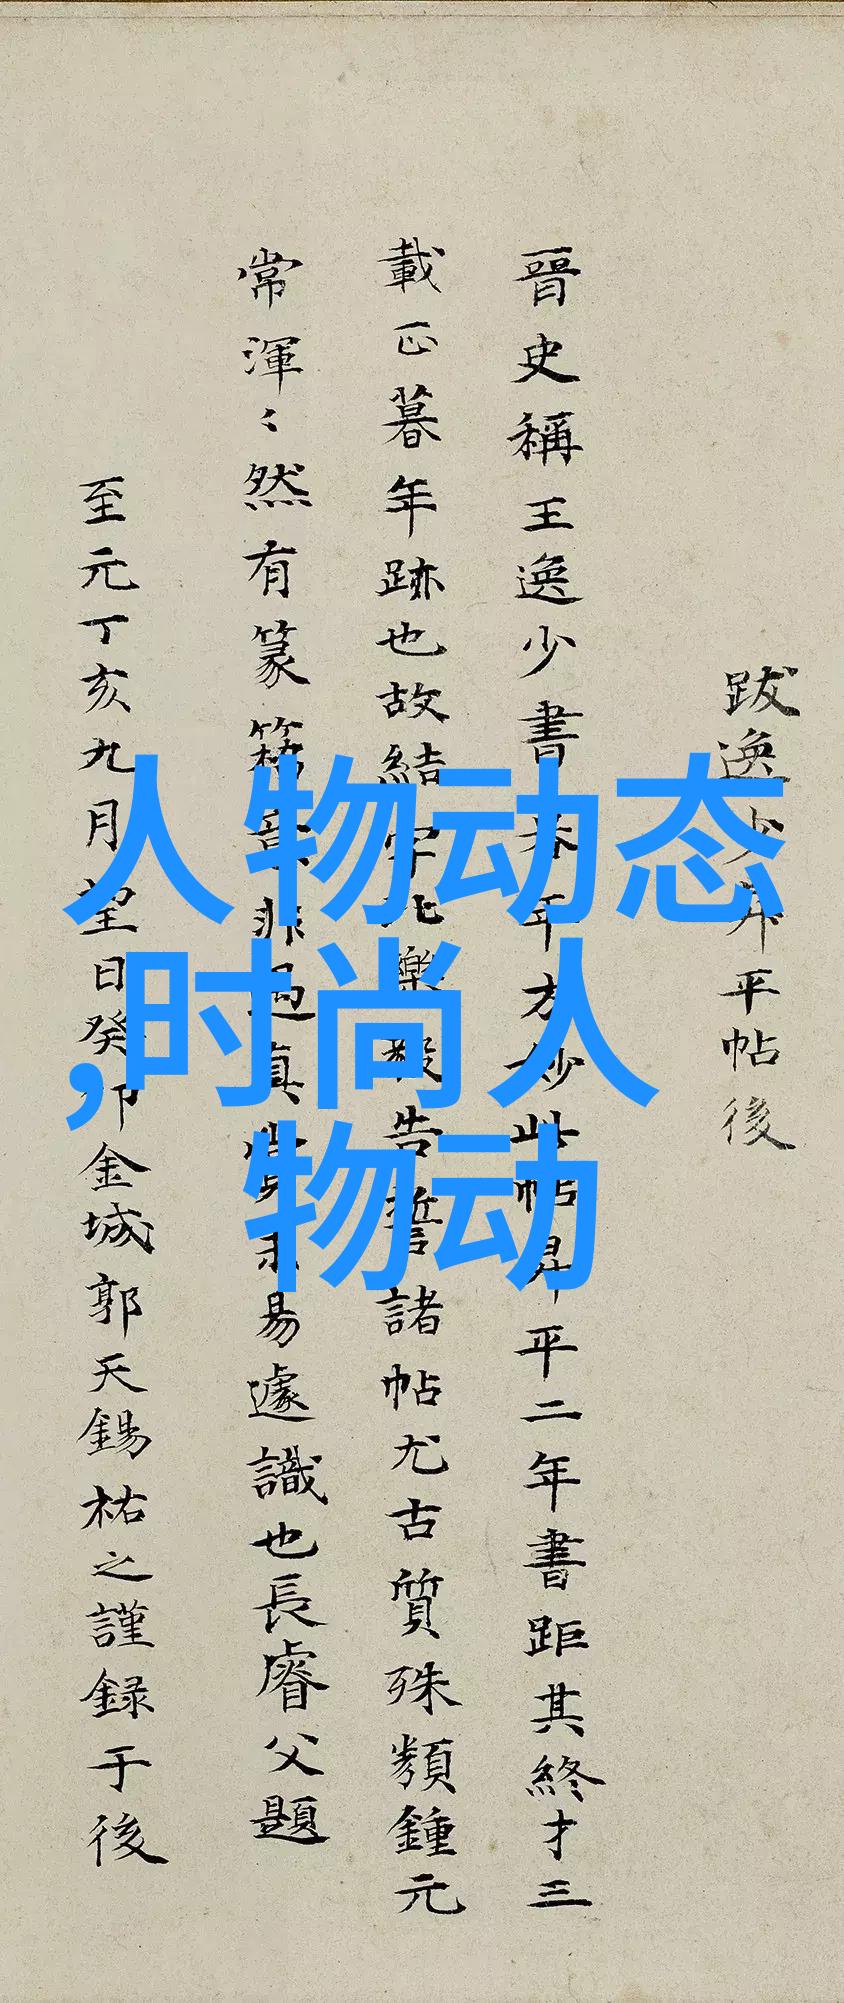 跋逸少昇平帖後
晉史稱王逸少書暮年方妙此帖昇平二年書距其終才三
載正暮年跡也故結字比樂毅告誓諸帖尤古質殊類鍾元
常渾〻然有篆籀意非過真賞未易遽識也長睿父題
至元丁亥九月望日癸卯金城郭天錫祐之謹録于後
人物动态
,时尚人
物动